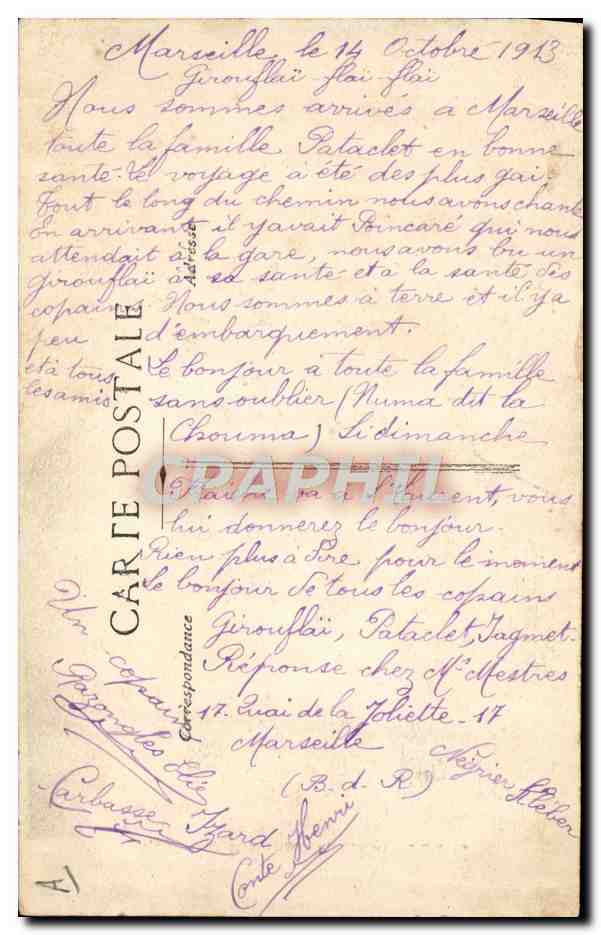 Marseille, le 14 Octobre 1913
Girouflaï-flaï-flaï
Nous sommes arrivés à Marseille
toute la famille Pataclet en bonne
santé. Le voyage a été des plus gai.
Tout le long du chemin nous avons chanté
En arrivant il y avait Poincaré qui nous
attendait à la gare, nous avons bu un
Girouflaï à sa santé et à la santé des
copains. Nous sommes à terre et il y a
peu d'embarquement.
Le bonjour à toute la famille
et à tous
les amis
sans oublier (Numa dit la
Chouma) Si dimanche
va à St Laurent, vous
lui donnerez le bonjour.
Rien plus à dire pour le moment
Le bonjour de tous les copains
Girouflaï, Pataclet, Jagmet.
Réponse chez Me Mestres
17. Quai de la Joliette. 17
Marseille
(B. d. R)
Un copain
Razongles Elie
Carbasse
Izard
Conte Henri
Négrier Kléber
CARTE POSTALE
Correspondance
Adresse
CPAPHIL
A